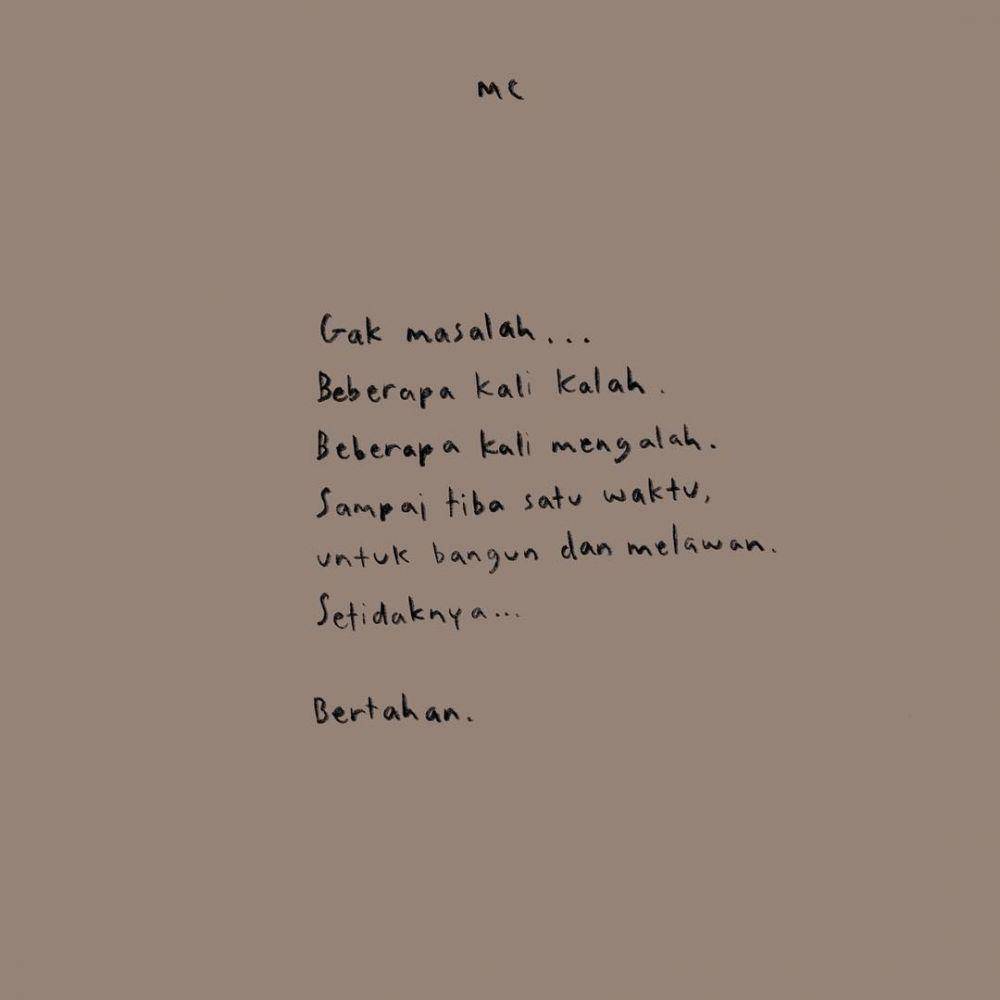 MC
Gak masalah...
Beberapa kali kalah.
Beberapa kali mengalah.
Sampai tiba satu waktu,
untuk bangun dan melawan.
Setidaknya...
Bertahan.